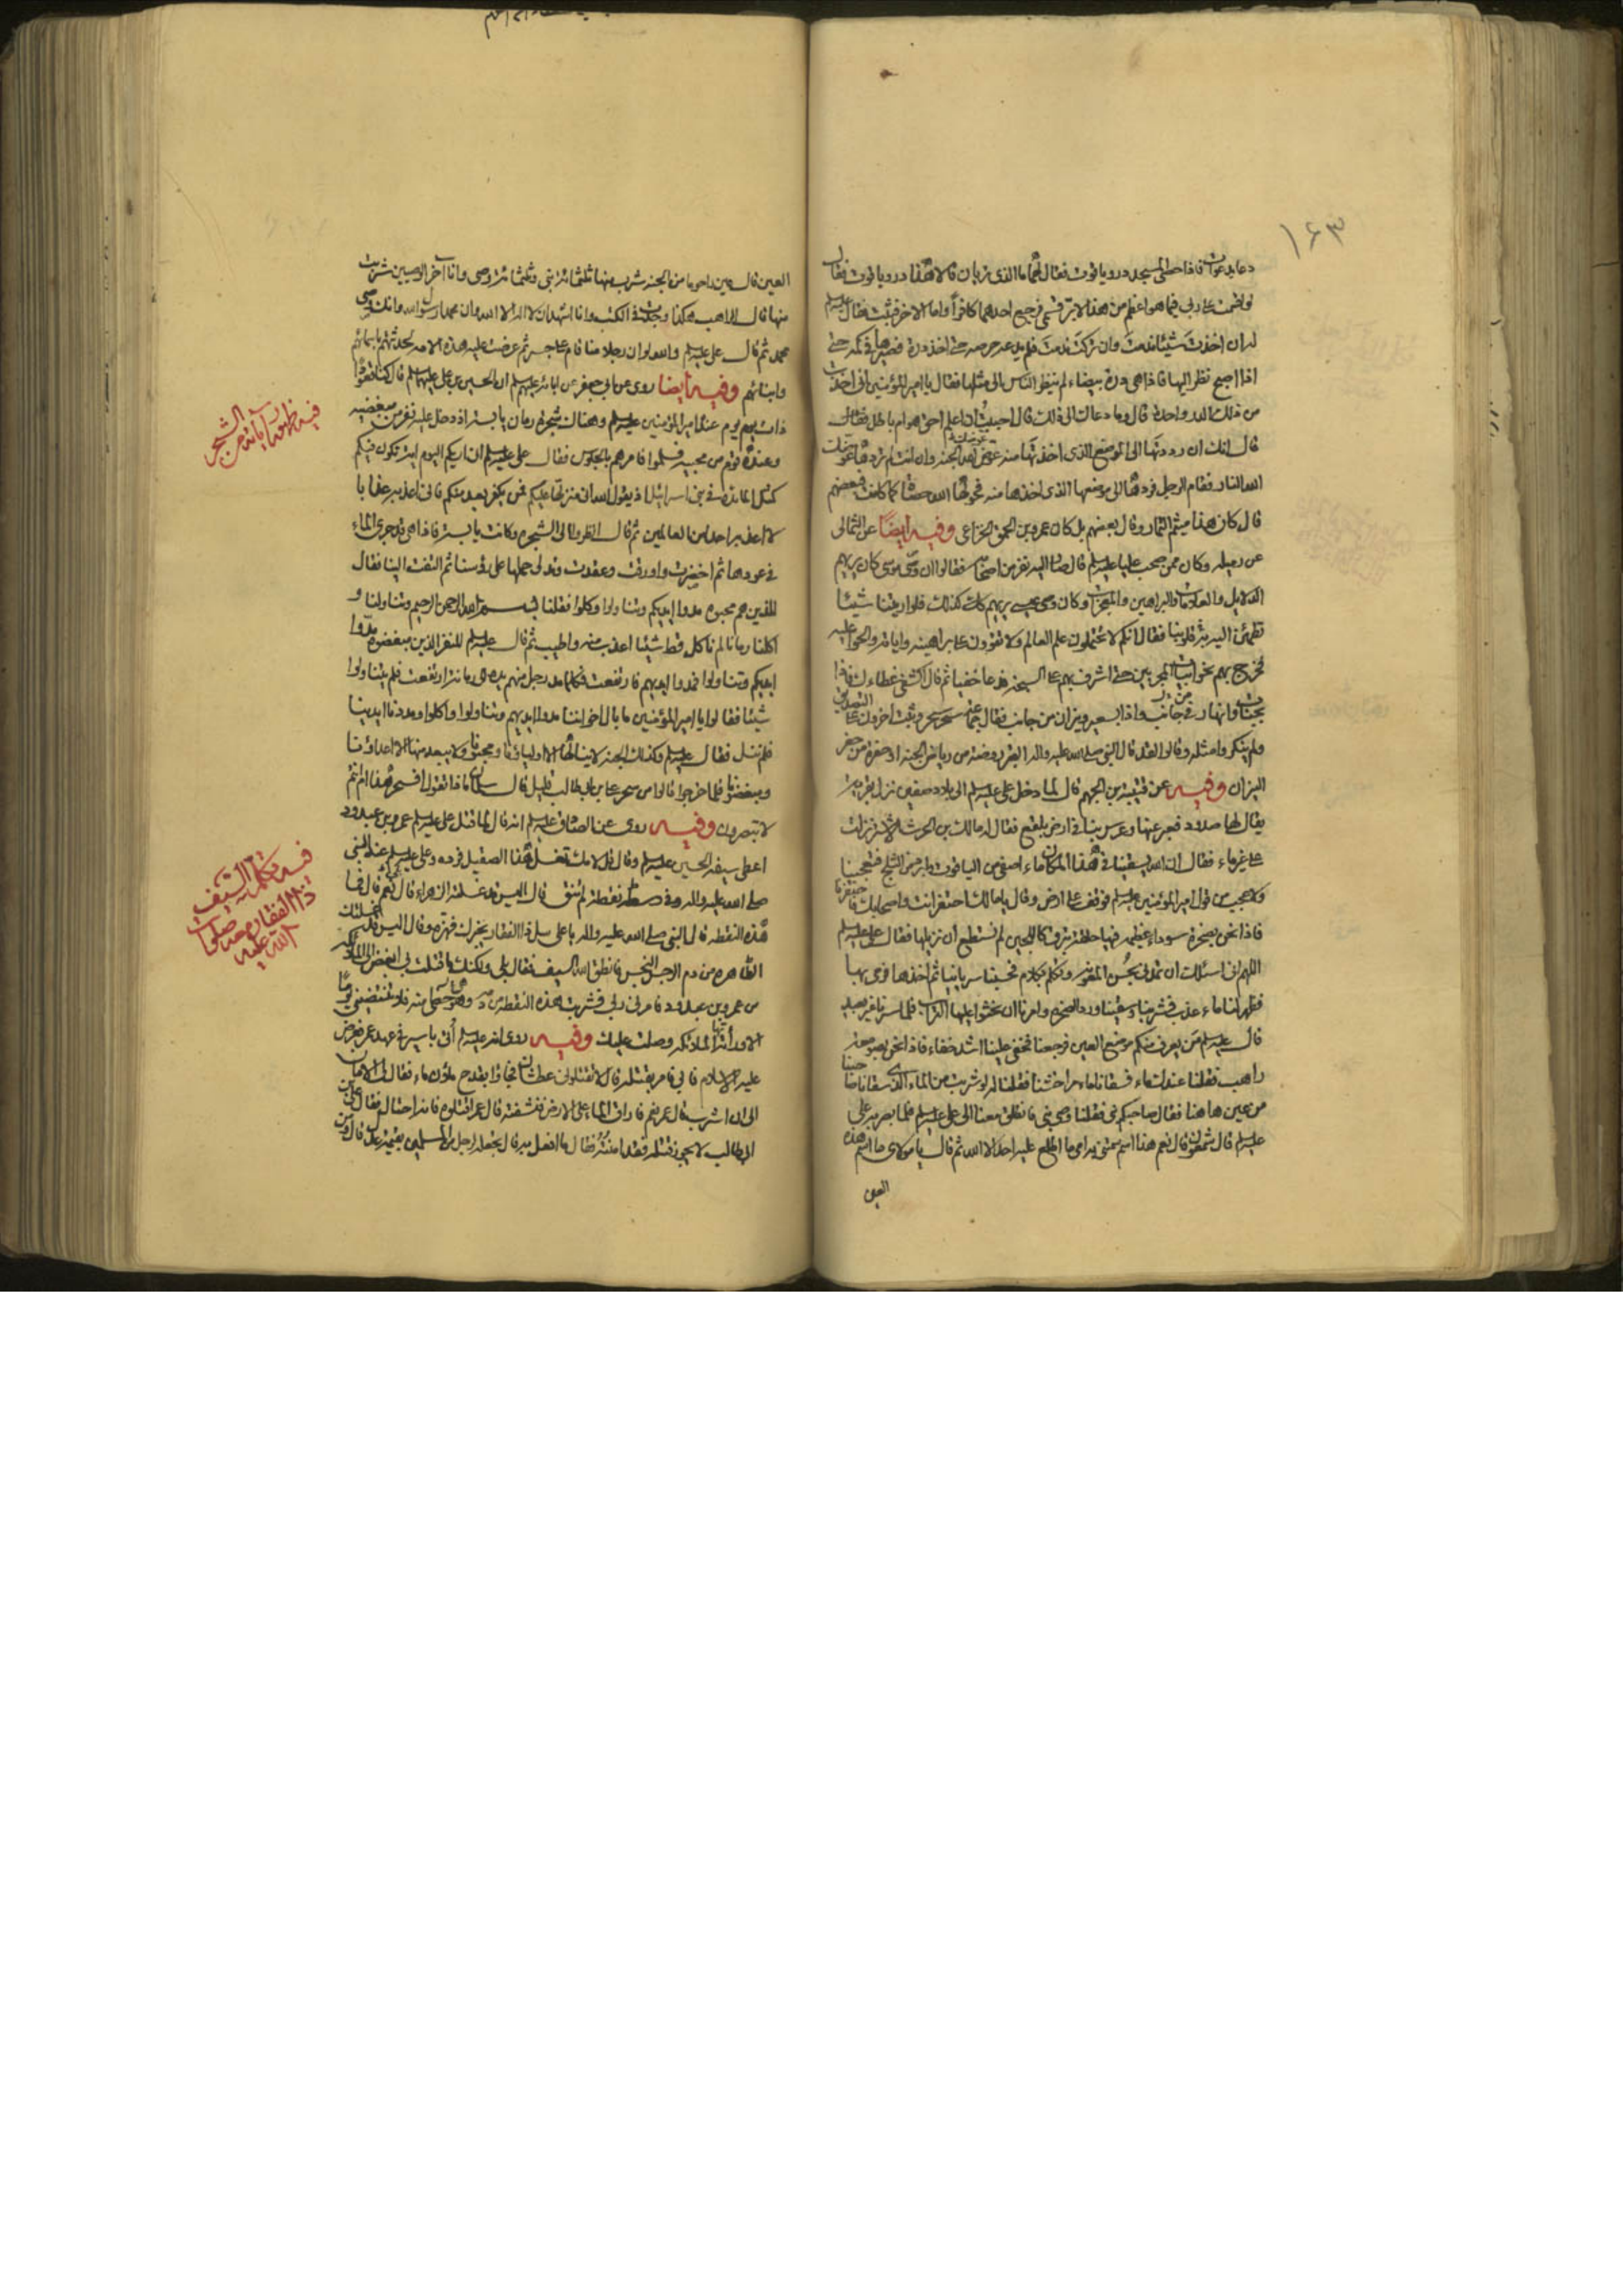 ١٦٣
دعا بدعوات فاذا حصى المسجد در وياقوت فقال لهما ما الذى تريان قالا هذا در وياقوت فقال
لو اقسمت على ربى فيما هو اعظم من هذا لابر قسمى فرجع احدهما كافرا واما الاخر فثبت فقال عليه السلم
له ان اخذت شيئا ندمت وان تركت ندمت فلم يدعه حرصه حتى اخذ درة فصيرها فى كمه حتى
اذا اصبح نظر اليها فاذا هى درة بيضاء لم ينظر الناس الى مثلها فقال يا امير المؤمنين انى اخذت
من ذلك الدر واحدة قال وما دعاك الى ذلك قال احببت ان اعلم احق هو ام باطل فقال
قال انك ان رددتها الى الموضع الذى اخذتها منه عوضك الله الجنة وان انت لم تردها عوضك
الله النار فقام الرجل فردها الى موضعها الذى اخذها منه فحولها الله حصاة كما كانت فبعضهم
قال كان هذا ميثم التمار وقال بعضهم بل كان عمرو بن الحمق الخزاعى وفيه ايضا عن الثمالى
عن رميلة وكان ممن صحب عليا عليه السلم قال صار اليه نفر من اصحابه فقالوا ان وصى موسى كان يريهم
الدلايل والعلامات والبراهين والمعجزات وكان وصى عيسى يريهم كذلك فلو اريتنا شيئا
تطمئن اليه وبه قلوبنا فقال انكم لا تحتملون علم العالم ولا تقوون على براهينه واياته والحوا عليه
فخرج بهم نحو ابيات الهجريين حتى اشرف بهم على السبخة فدعا خفيا ثم قال اكشفى غطاءك فاذا
بجنات وانهار فى جانب واذا بسعير ونيران من جانب فقال جماعة سحر سحر وثبت اخرون على التصديق
ولم ينكروا مثلهم وقالوا لقد قال النبى صلى الله عليه واله القبر روضة من رياض الجنة او حفرة من حفر
النيران وفيه عن قتيبة بن الجهم قال لما دخل على عليه السلم الى بلاد صفين نزل بقرية
يقال لها صندودا فعبر عنها وعرس بنا فى ارض بلقع فقال له مالك بن الحرث الاشتر نزلت
على غير ماء فقال ان الله يسقينا فى هذا المكان ماء اصفى من الياقوت وابرد من الثلج فتعجبنا
ولا عجب من قول امير المؤمنين عليه السلم فوقف على ارض وقال يا مالك احتفر انت واصحابك فاحتفرنا
فاذا نحن بصخرة سوداء عظيمة فيها حلقة تبرق كاللجين لم نستطع ان نزيلها فقال على عليه السلم
اللهم انى اسئلك ان تمدنى بحسن المعونة وتكلم بكلام حسبناه سريانيا ثم اخذها فرمى بها
فظهر لنا ماء عذب فشربنا وسقينا ورد الصخرة وامرنا ان نحثوا عليها التراب فلما سرنا غير بعيد
قال عليه السلم من يعرف منكم موضع العين فرجعنا فخفى علينا اشد خفاء فاذا نحن بصومعة
راهب فقلنا عندك ماء فسقانا ماء مرا خشنا فقلنا له لو شربت من الماء الذى سقانا صاحبنا
من عين ها هنا فقال صاحبكم نبى فقلنا وصى نبى فانطلق معنا الى على عليه السلم فلما بصر به على
عليه السلم قال شمعون قال نعم هذا اسم سمتنى به امى ما اطلع عليه احد الا الله ثم قال يا مولاى ما اسم هذه
العين
العين قال عين راحوما من الجنة شرب منها ثلثمائة نبى وثلثمائة وصى وانا آخر الوصيين شربت
منها قال الراهب هكذا وجدت فى الكتب وانا اشهد ان لا اله الا الله وان محمدا رسول الله وانك وصى
محمد ثم قال على عليه السلم والله لو ان رجلا منا قام على جسر ثم عرضت عليه هذه الامة لحدثهم باسمائهم
وابنائهم وفيه ايضا روى عن ابى جعفر عن ابائه عليهم السلم ان الحسين بن على عليهما السلم قال كنا قعودا
ذات يوم عند امير المؤمنين عليه السلم وهناك شجرة رمان يابسة اذ دخل عليه نفر من مبغضيه
وعنده قوم من محبيه فسلموا فامرهم بالجلوس فقال على عليه السلم انى اريكم اليوم اية تكون فيكم
كمثل المائدة فى بنى اسرائيل اذ يقول الله انى منزلها عليكم فمن يكفر بعد منكم فانى اعذبه عذابا
لا اعذبه احدا من العالمين ثم قال انظروا الى الشجرة وكانت يابسة فاذا هى قد جرى الماء
فى عودها ثم اخضرت واورقت وعقدت وتدلى حملها على رؤسنا ثم التفت الينا فقال
للذين هم محبوه مدوا ايديكم وتناولوا وكلوا فقلنا بسم الله الرحمن الرحيم وتناولنا و
اكلنا رمانا لم ناكل قط شيئا اعذب منه واطيب ثم قال عليه السلم للنفر الذين مبغضوه مدوا
ايديكم وتناولوا فمدوا ايديهم فارتفعت فكلما مد رجل منهم يده الى رمانة ارتفعت فلم يتناولوا
شيئا فقالوا يا امير المؤمنين ما بال اخواننا مدوا ايديهم وتناولوا واكلوا ومددنا ايدينا
فلم ننل فقال عليه السلم وكذلك الجنة لا ينالها الا اولياؤنا ومحبونا ولا يبعد منها الا اعداؤنا
ومبغضونا فلما خرجوا قالوا من سحر على بن ابى طالب قليل قال سلمان ماذا تقولون افسحر هذا ام انتم
لا تبصرون وفيه روى عن الصادق عليه السلم انه قال لما قتل على عليه السلم عمرو بن عبدود
اعطى سيفه الحسن عليه السلم وقال قل لامك تغسل هذا الصقيل فرده وعلى عليه السلم عند النبى
صلى الله عليه واله وفى وسطه نقطة لم تنق قال اليس قد غسلته الزهراء قال نعم قال فما
هذه النقطة قال النبى صلى الله عليه واله يا على سل ذا الفقار يخبرك فهزه وقال اليس قد غسلتك
الطاهرة من دم الرجس النجس فانطق الله السيف فقال بلى ولكنك ما قتلت بى ابغض الى الملائكة
من عمرو بن عبدود فامرنى ربى فشربت هذه النقطة من دمه وهو حظى منه فلا تنتضينى يوما
الا ورأته الملائكة وصلت عليك وفيه روى انه عليه السلم اتى باسير فى عهد عمر فعرض
عليه الاسلام فابى فامر بقتله قال لا تقتلونى عطشانا فجاؤا بقدح ملؤ ماء فقال لى الامان
الى ان اشرب قال عمر نعم فاراق الماء على الارض فنشفته قال عمر اقتلوه فانه احتال فقال على بن
ابى طالب لا يجوز قتله فقد امنته قال ما افعل به قال يجعل لرجل من المسلمين بقيمة عدل قال ومن
فيه ظهور آياته من الشجر
فيه تكلم السيف
ذا الفقار معه صلوات
الله عليه